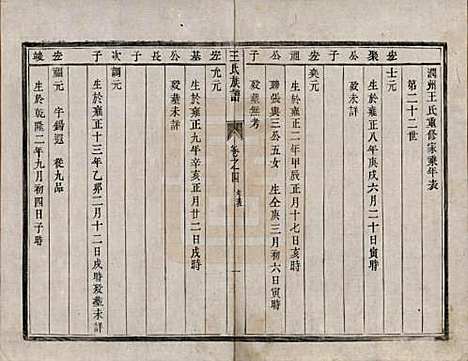 潤州王氏重修家乘年表
第二十二世
宏士元
聚 生於雍正八年庚戌六月二十日寅時
公 歿葬未詳
子
宏奕元
誼 生於雍正二年甲辰正月十七日亥時
公 聯張與三公五女 生仝庚三月初六日寅時
子 歿葬無考
王氏族譜
卷之四
年表
一
宏允元
基 生於雍正九年辛亥正月廿二日戌時
公 歿葬未詳
長
子
次調元
子 生於雍正十三年乙卯二月十二日戌時歿葬未詳
宏福元 字錫遐 從九品
竣 生於乾隆二年九月初四日子時